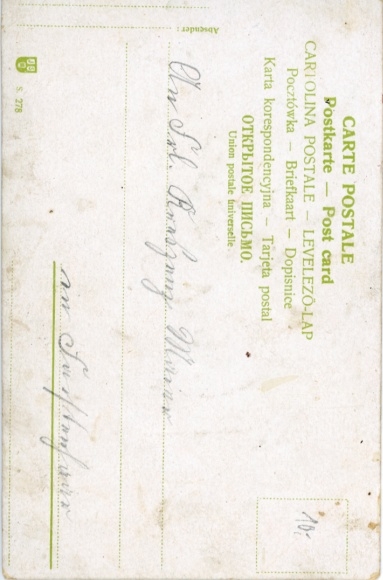 CARTE POSTALE
Postkarte — Post card
CARTOLINA POSTALE — LEVELEZŐ-LAP
Pocztówka — Briefkaart — Dopisnice
Karta korespondencyjna — Tarjeta postal
ОТКРЫТОЕ ПИСЬМО.
Union postale universelle
Absender:
An Frl.
in
10.-
S. 278